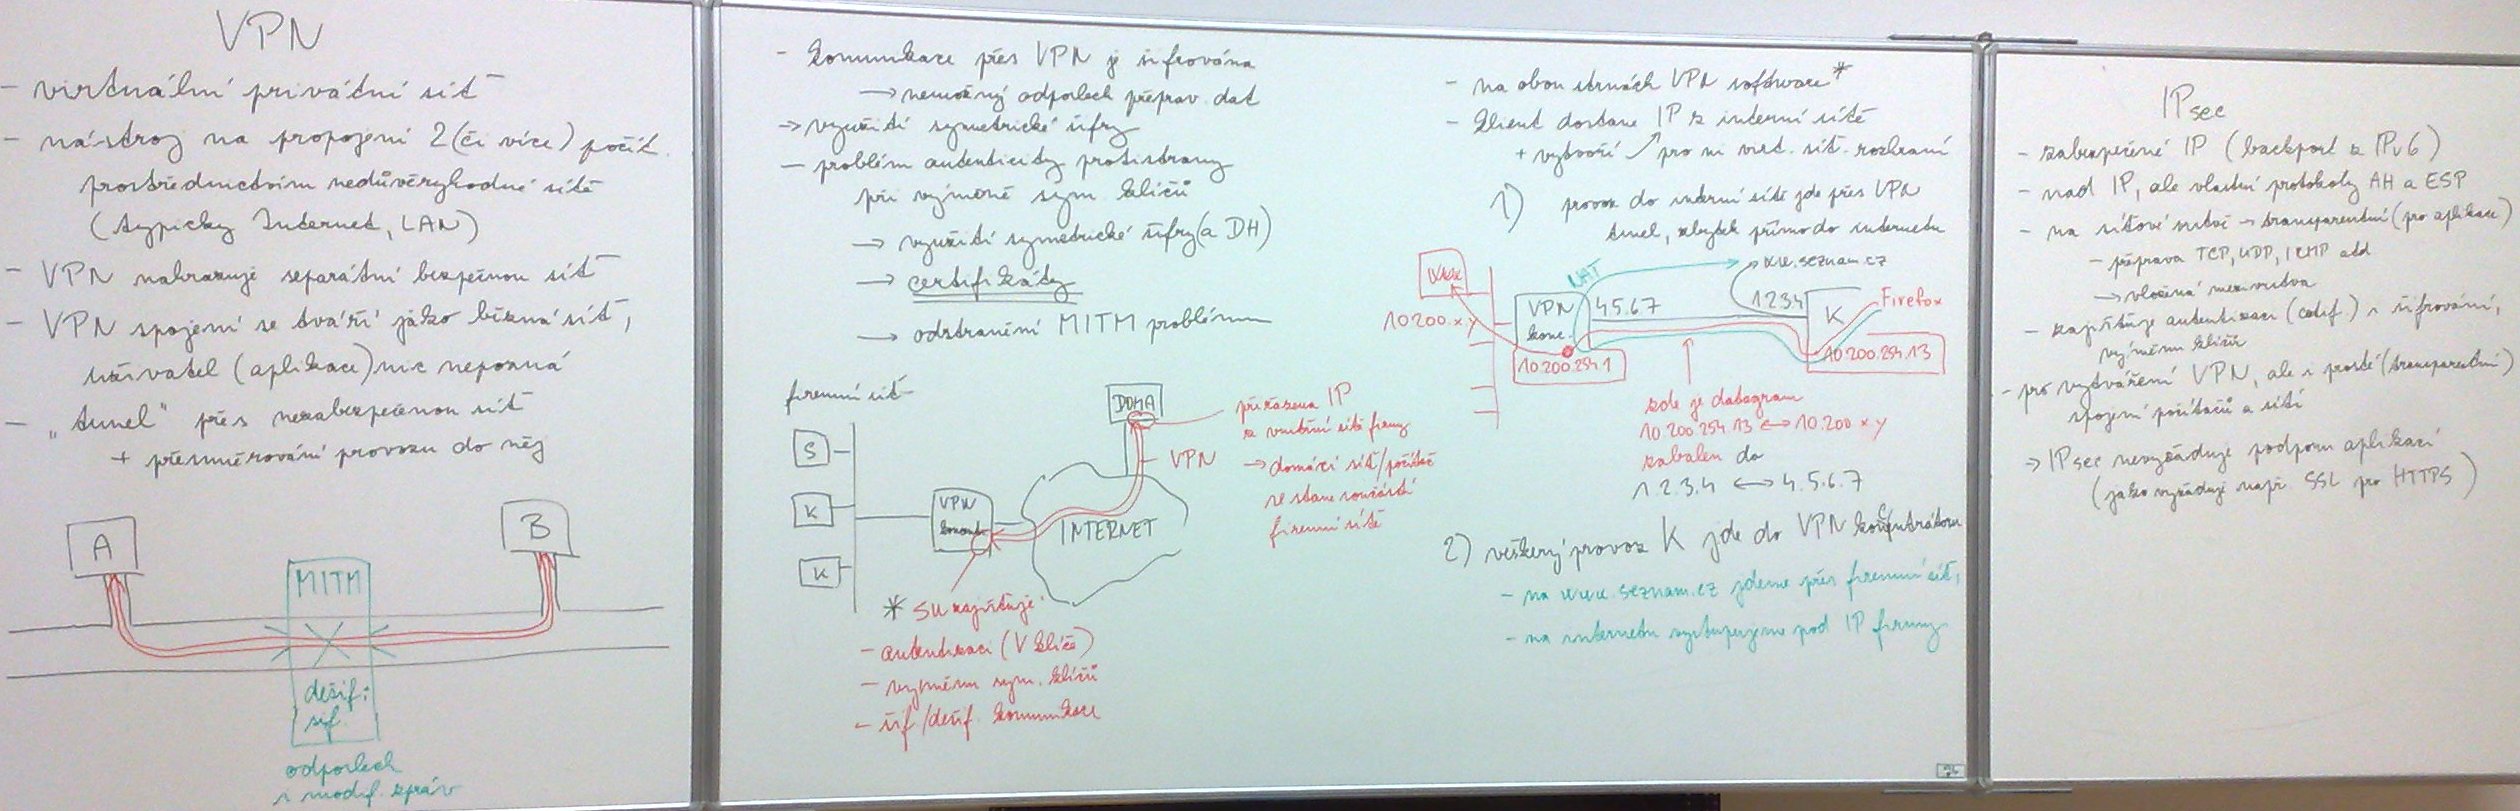 VPN
- virtuální privátní síť
- nástroj na propojení 2 (či více) počít.
prostřednictvím nedůvěryhodné sítě
(typicky Internet, LAN)
- VPN nahrazuje separátní bezpečnou síť
- VPN spojení se tváří jako běžná síť,
uživatel (aplikace) nic nepozná
- „tunel" přes nezabezpečenou síť
+ přesměrování provozu do něj
A
B
MITM
dešif.
šif.
odposlech
i modif. zpráv
- komunikace přes VPN je šifrována
→ nemožný odposlech přeprav. dat
→ využití symetrické šifry
- problém autenticity protistrany
při výměně sym. klíčů
→ využití symetrické šifry (a DH)
→ certifikáty
→ odstranění MITM problému
firemní síť
S
K
K
VPN
konc.
INTERNET
DOMA
VPN
přiřazena IP
z vnitřní sítě firmy
→ domácí síť/počítač
se stane součástí
firemní sítě
* SW zajišťuje:
- autentizaci (V klíče)
- výměnu sym. klíčů
- šif/dešif. komunikace
- na obou stranách VPN software*
- klient dostane IP z interní sítě
+ vytvoří pro ni virt. síť. rozhraní
1) provoz do interní sítě jde přes VPN
tunel, zbytek přímo do internetu
NAT
www.seznam.cz
10.200.x.y
VPN
konc.
4.5.6.7
1.2.3.4
K
Firefox
10.200.254.1
10.200.254.13
zde je datagram
10.200.254.13 ↔ 10.200.x.y
zabalen do
1.2.3.4 ↔ 4.5.6.7
2) veškerý provoz K jde do VPN koncentrátoru
- na www.seznam.cz jdeme přes firemní síť,
- na internetu vystupujeme pod IP firmy
IPsec
- zabezpečené IP (backport z IPv6)
- nad IP, ale vlastní protokoly AH a ESP
- na síťové vrstvě → transparentní (pro aplikace)
- přeprava TCP, UDP, ICMP atd
→ vložená mezivrstva
- zajišťuje autentizaci (certif.) i šifrování,
výměnu klíčů
- pro vytváření VPN, ale i prosté (transparentní)
spojení počítačů a sítí
→ IPsec nevyžaduje podporu aplikací
(jako vyžaduje např. SSL pro HTTPS)